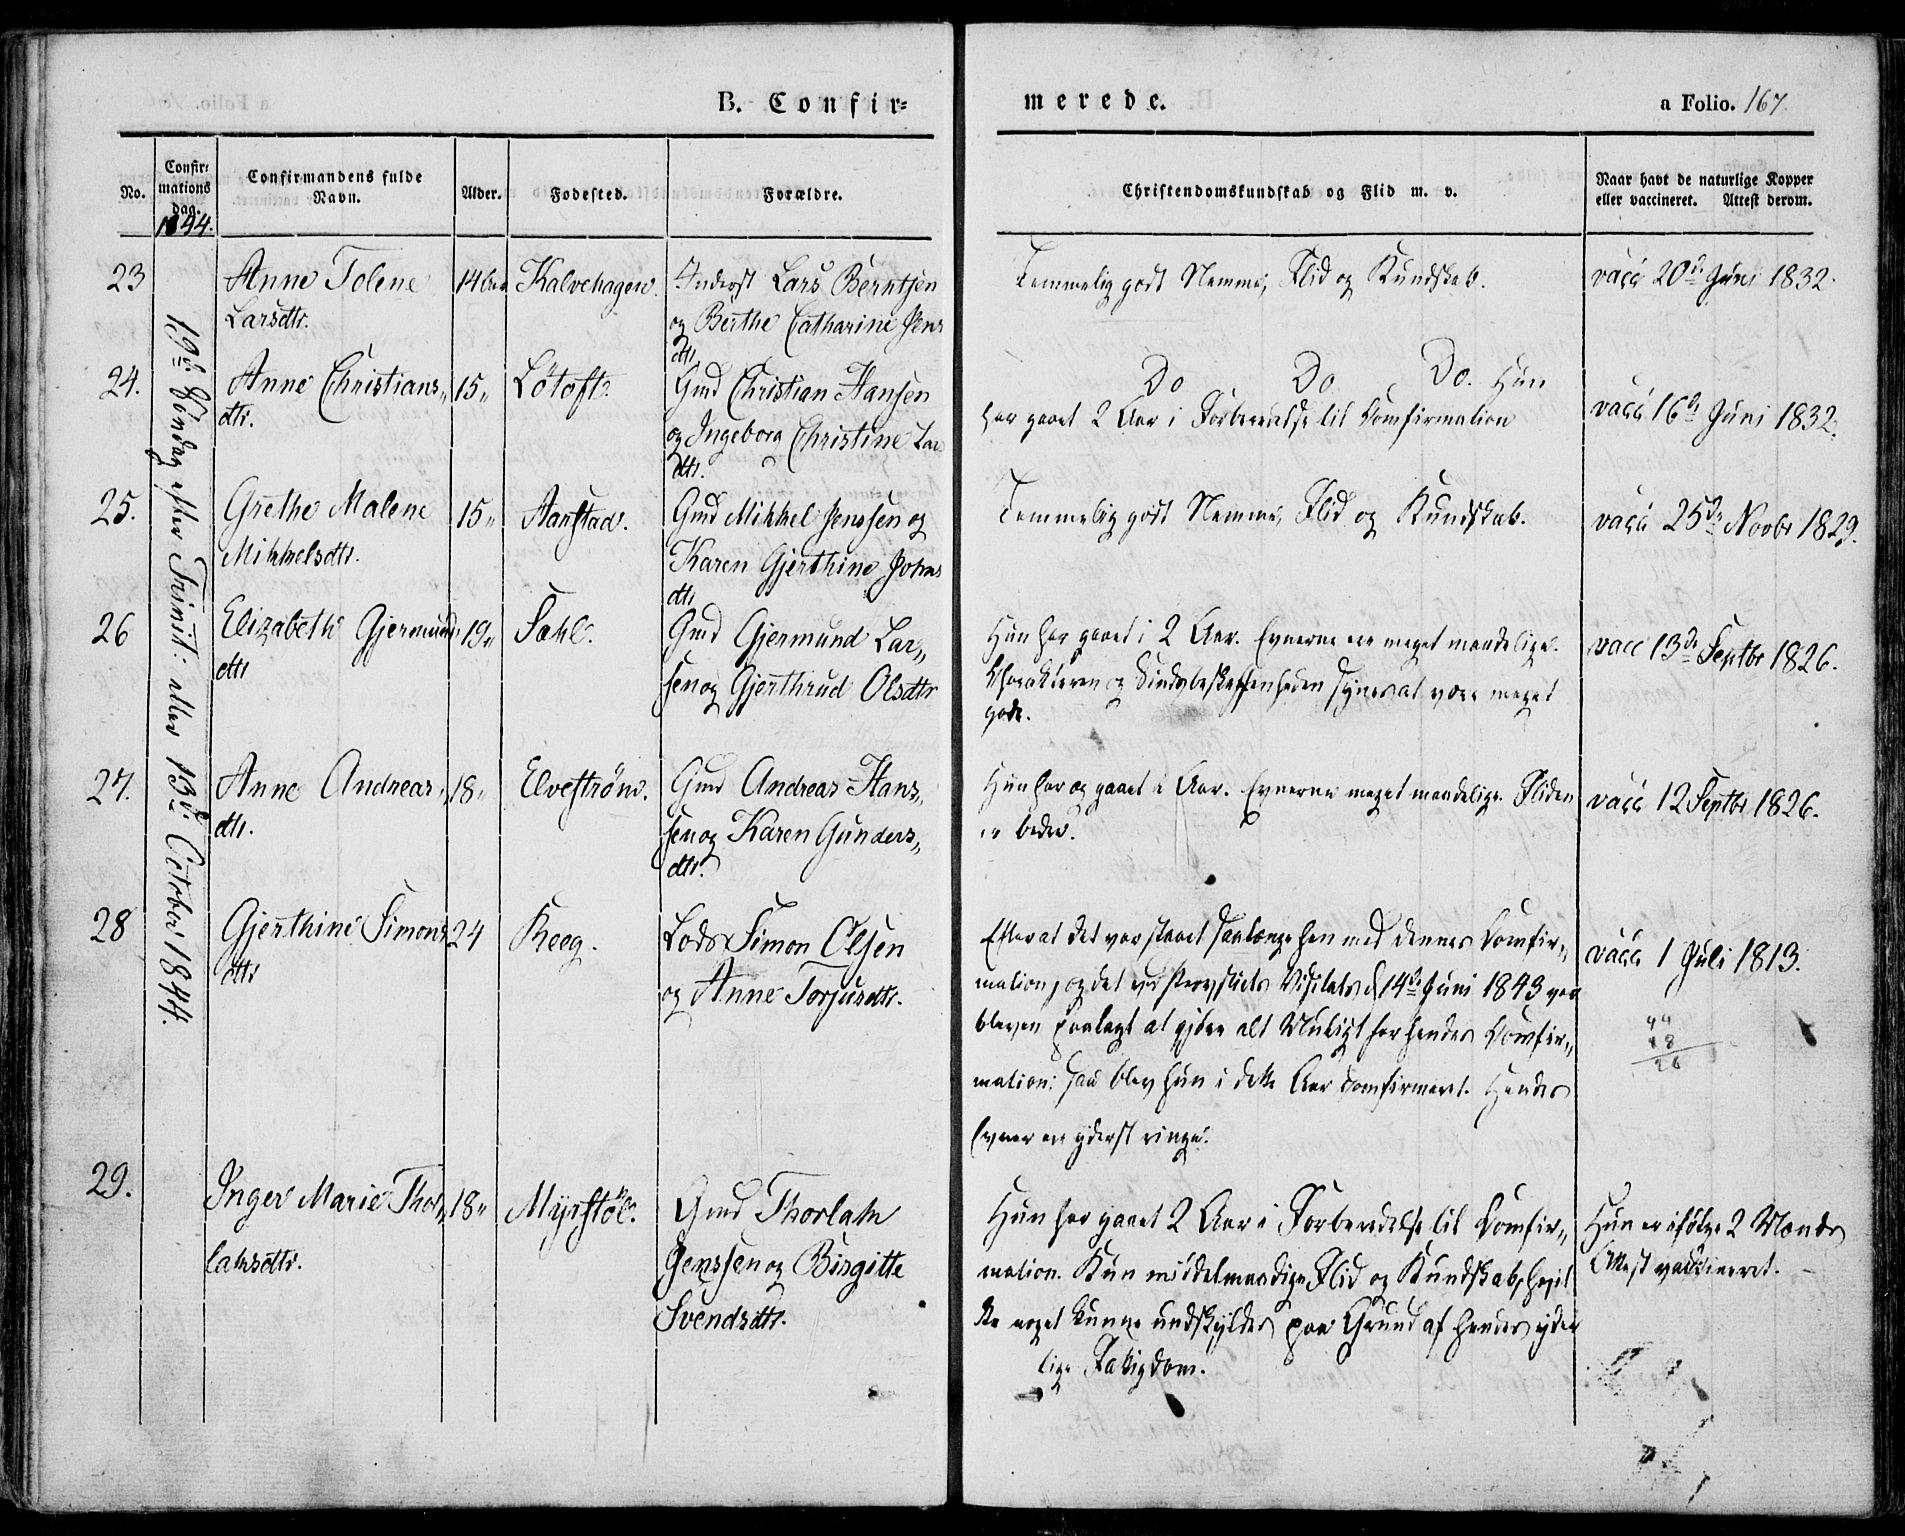 B. Confir=
merede.
a Folio. 167.
No.
Confir=
mations
dag.
1844.
Confirmandens fulde
Navn.
Alder.
Fodested.
Forældre.
Christendomskundskab og Flid m. v.
Naar havt de naturlige Kopper
eller vaccineret. Attest derom.
19de Söndag efter Trinit: eller 13de October 1844.
23
Anne Tolene
Larsdtr.
14
Kalvehagen.
Inderst Lars Berntsen
og Berthe Catharine Jens
dtr.
Temmelig godt Nemme, Flid og Kundskab.
vacc 20de Juni 1832.
24.
Anne Christians„
dtr.
15„
Lötoft.
Gmd Christian Hansen
og Ingeborg Christine Lars
dtr.
Do Do Do. Hun
har gaaet 2 Aar i Forberedelse til Comfirmation
vacc 16de Juni 1832.
25.
Grethe Malene
Mikkelsdtr.
15„
Aanstad.
Gmd Mikkel Jenssen og
Karen Gjerthine Johns
dtr.
Temmelig godt Nemme, Flid og Kundskab.
vacc 25de Novbr 1829.
26
Elizabeth Gjermunds
dtr
19„
Sahl.
Gmd Gjermund Lar„
sen og Gjerthrud Olsdtr
Hun har gaaet i 2 Aar. Evnerne ere meget maadelige.
Charakteren og Sindsbeskaffenheden synes at være meget
gode.
vacc 13de Septbr 1826.
27.
Anne Andreas„
dtr.
18„
Elveströen.
Gmd Andreas Hans„
sen og Karen Gunders„
dtr.
Hun har og gaaet i Aar. Evnerne meget maadelige. Fliden
er bedre.
vacc 12 Septbr 1826.
28
Gjerthine Simons
dtr
24
Keeg.
Lods Simon Olsen
og Anne Torjusdtr.
Efterat det var staaet saalænge hen med dennes Comfir„
mation, og det ved Provstiets Visitats d 14de Juni 1843 var
bleven paalagt at gjöre alt Muligt for hendes Comfir„
mation: saa blev hun i dette Aar comfirmeret. Hendes
Evner ere yderst ringe.
vacc 1 Juli 1813.
44
18
26
29.
Inger Marie Thor„
laksdtr.
18„
Myrstöl.
Gmd Thorlak
Jenssen og Birgitte
Svendsdtr.
Hun har gaaet 2 Aar i Forberedelse til Comfir„
mation. Kun middelmaadige Flid og Kundskab, hvil
ke noget kunne undskyldes paa Grund af hendes yder
lige Fattigdom.
Hun er ifölge 2 Mænds
Attest vaccineret.